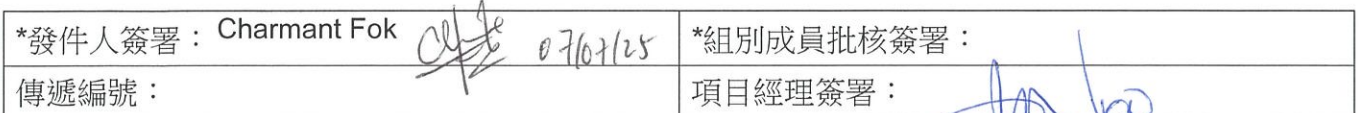 *發件人簽署： Charmant Fok 07/07/25
*組別成員批核簽署：
傳遞編號：
項目經理簽署：